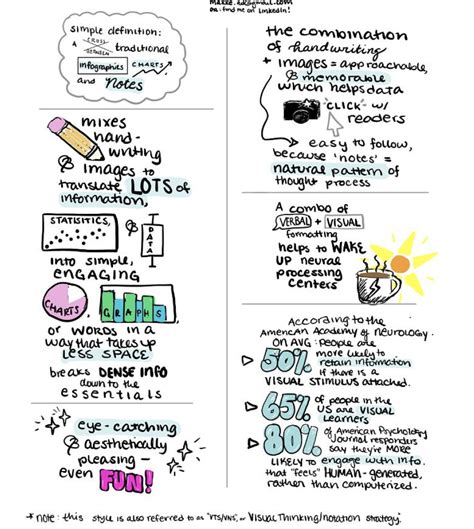 or find me on LinkedIn!
simple definition:
a CROSS BETWEEN traditional
infographics CHARTS
and notes
mixes
hand-
writing
& images to
translate LOTS of
information,
STATISITICS,
& DATA
into simple,
ENGAGING
CHARTS,
GRAPHS
or WORDS IN a
way that takes up
LESS SPACE
breaks DENSE INFO
down to the
essentials
eye-catching
& aesthetically
pleasing -
even FUN!
the combination
of handwriting
+ images = approachable,
& memorable
which helps data
"CLICK" w/
readers
easy to follow,
because 'notes' =
natural pattern of
thought process
A combo of
VERBAL + VISUAL
formatting
helps to WAKE
UP neural
processing
centers
ACCORDING to the
AMERICAN ACADEMY of NEUROLOGY,
ON AVG: people are
50% more likely to
retain information
if THERE is a
VISUAL STIMULUS attached.
65% of people in the
US are VISUAL
Learners
80% of American Psychology
Journal responders
say they're MORE
LIKELY to engage with info.
that "feels" HUMAN-generated,
rather than computerized.
* note: this style is also referred to as "VTS/VNS", or VISUAL Thinking/notation strategy."